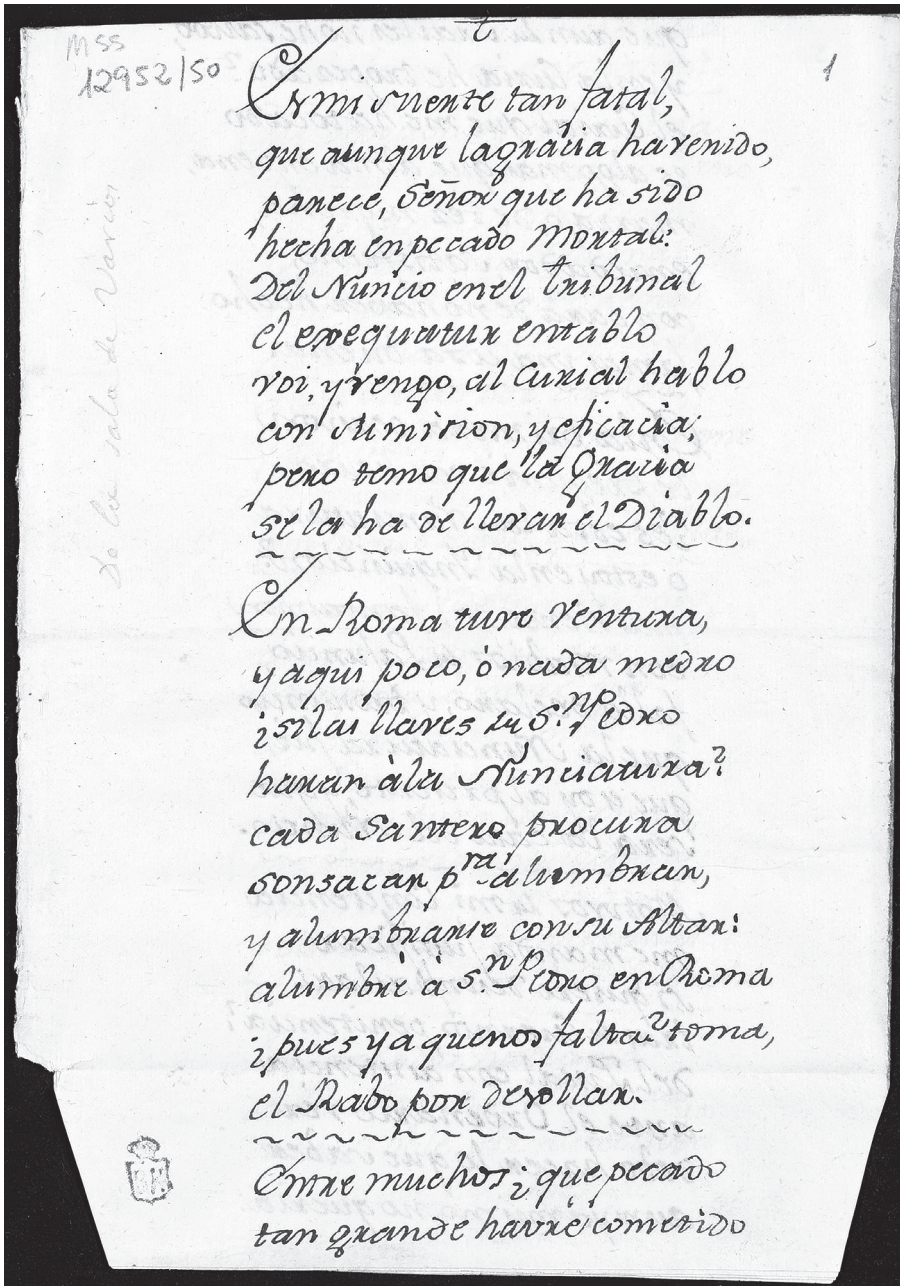 Mss
12952/50
1
De la sala de Varios
Es mi suerte tan fatal,
que aunque la gracia ha venido,
parece, Señor que ha sido
hecha en pecado Mortal:
Del Nuncio en el tribunal
el exequatur entablo
voi, y vengo, al Curial hablo
con sumision, y eficacia;
pero temo que la Gracia
se la ha de llevar el Diablo.
En Roma tuve Ventura,
y aqui poco, ò nada medro
¿si las llaves de S.n Pedro
haran à la Nunciatura?
cada Santero procura
sonsacar p.ra alumbrar,
y alumbrarse con su Altar:
alumbrè à S.n Pedro en Roma
¿pues ya que nos falta? toma,
el Rabo por desollar.
Entre muchos; ¿que pecado
tan grande havrè cometido